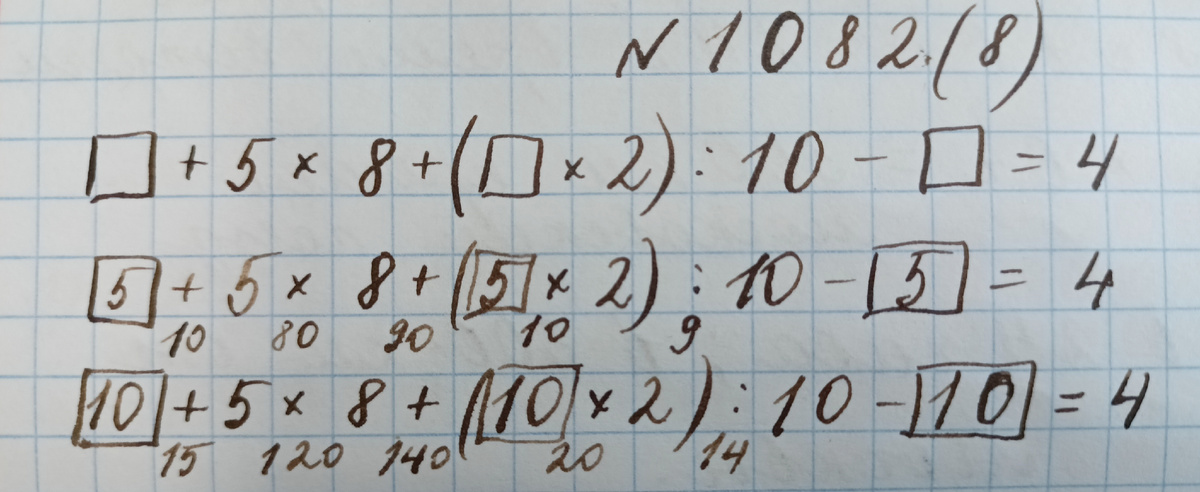 N 1082.(8)
□ + 5 × 8 + (□ × 2) : 10 - □ = 4
5 + 5 × 8 + (5 × 2) : 10 - 5 = 4
10 80 90 10 9
10 + 5 × 8 + (10 × 2) : 10 - 10 = 4
15 120 140 20 14